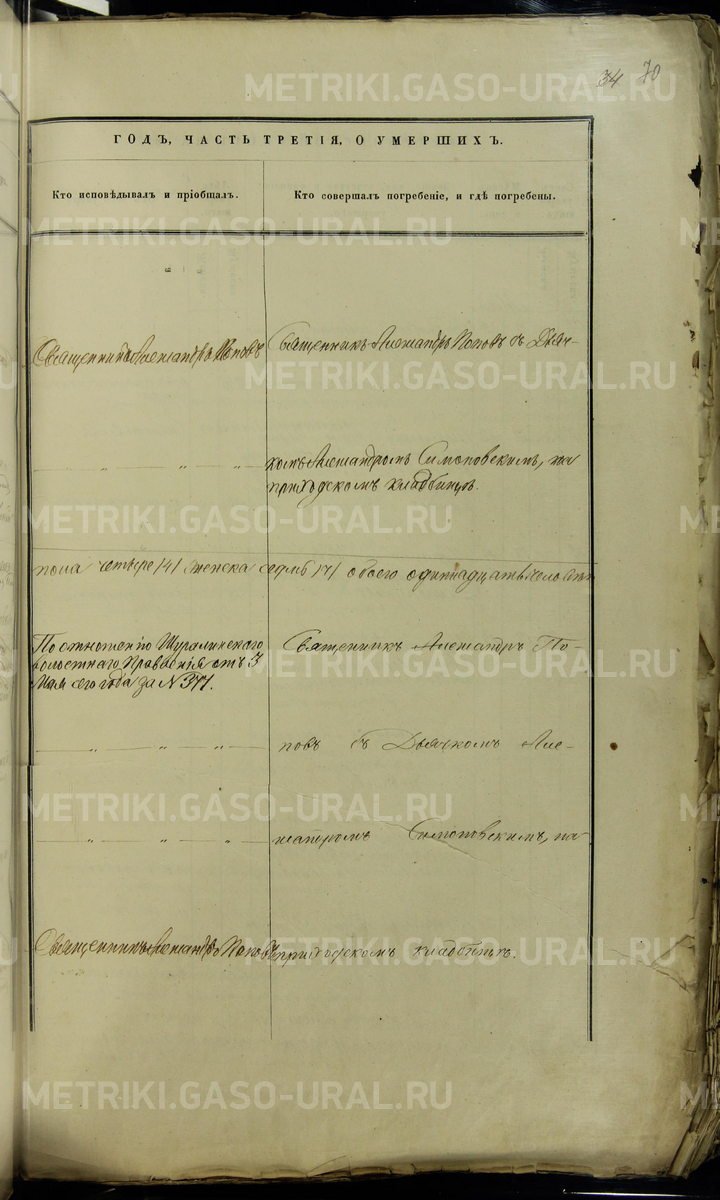 34 70
ГОДЪ, ЧАСТЬ ТРЕТІЯ, О УМЕРШИХЪ.
Кто исповѣдывалъ и пріобщалъ.
Кто совершалъ погребеніе, и гдѣ погребены.
Священникъ Александръ Поповъ
Священникъ Александръ Поповъ съ Дьяч-
комъ Александромъ Симоновскимъ, на
приходскомъ кладбищѣ.
пола четыре /4/ женска седмь /7/ обоего одиннадцать человѣкъ
По отношенію Шуралинскаго
волостнаго Правленія отъ 3
Мая сего года за № 371.
Священникъ Александръ По-
повъ съ Дьячкомъ Але-
ксандромъ Симоновскимъ, на
Священникъ Александръ Поповъ
приходскомъ кладбищѣ.
METRIKI.GASO-URAL.RU